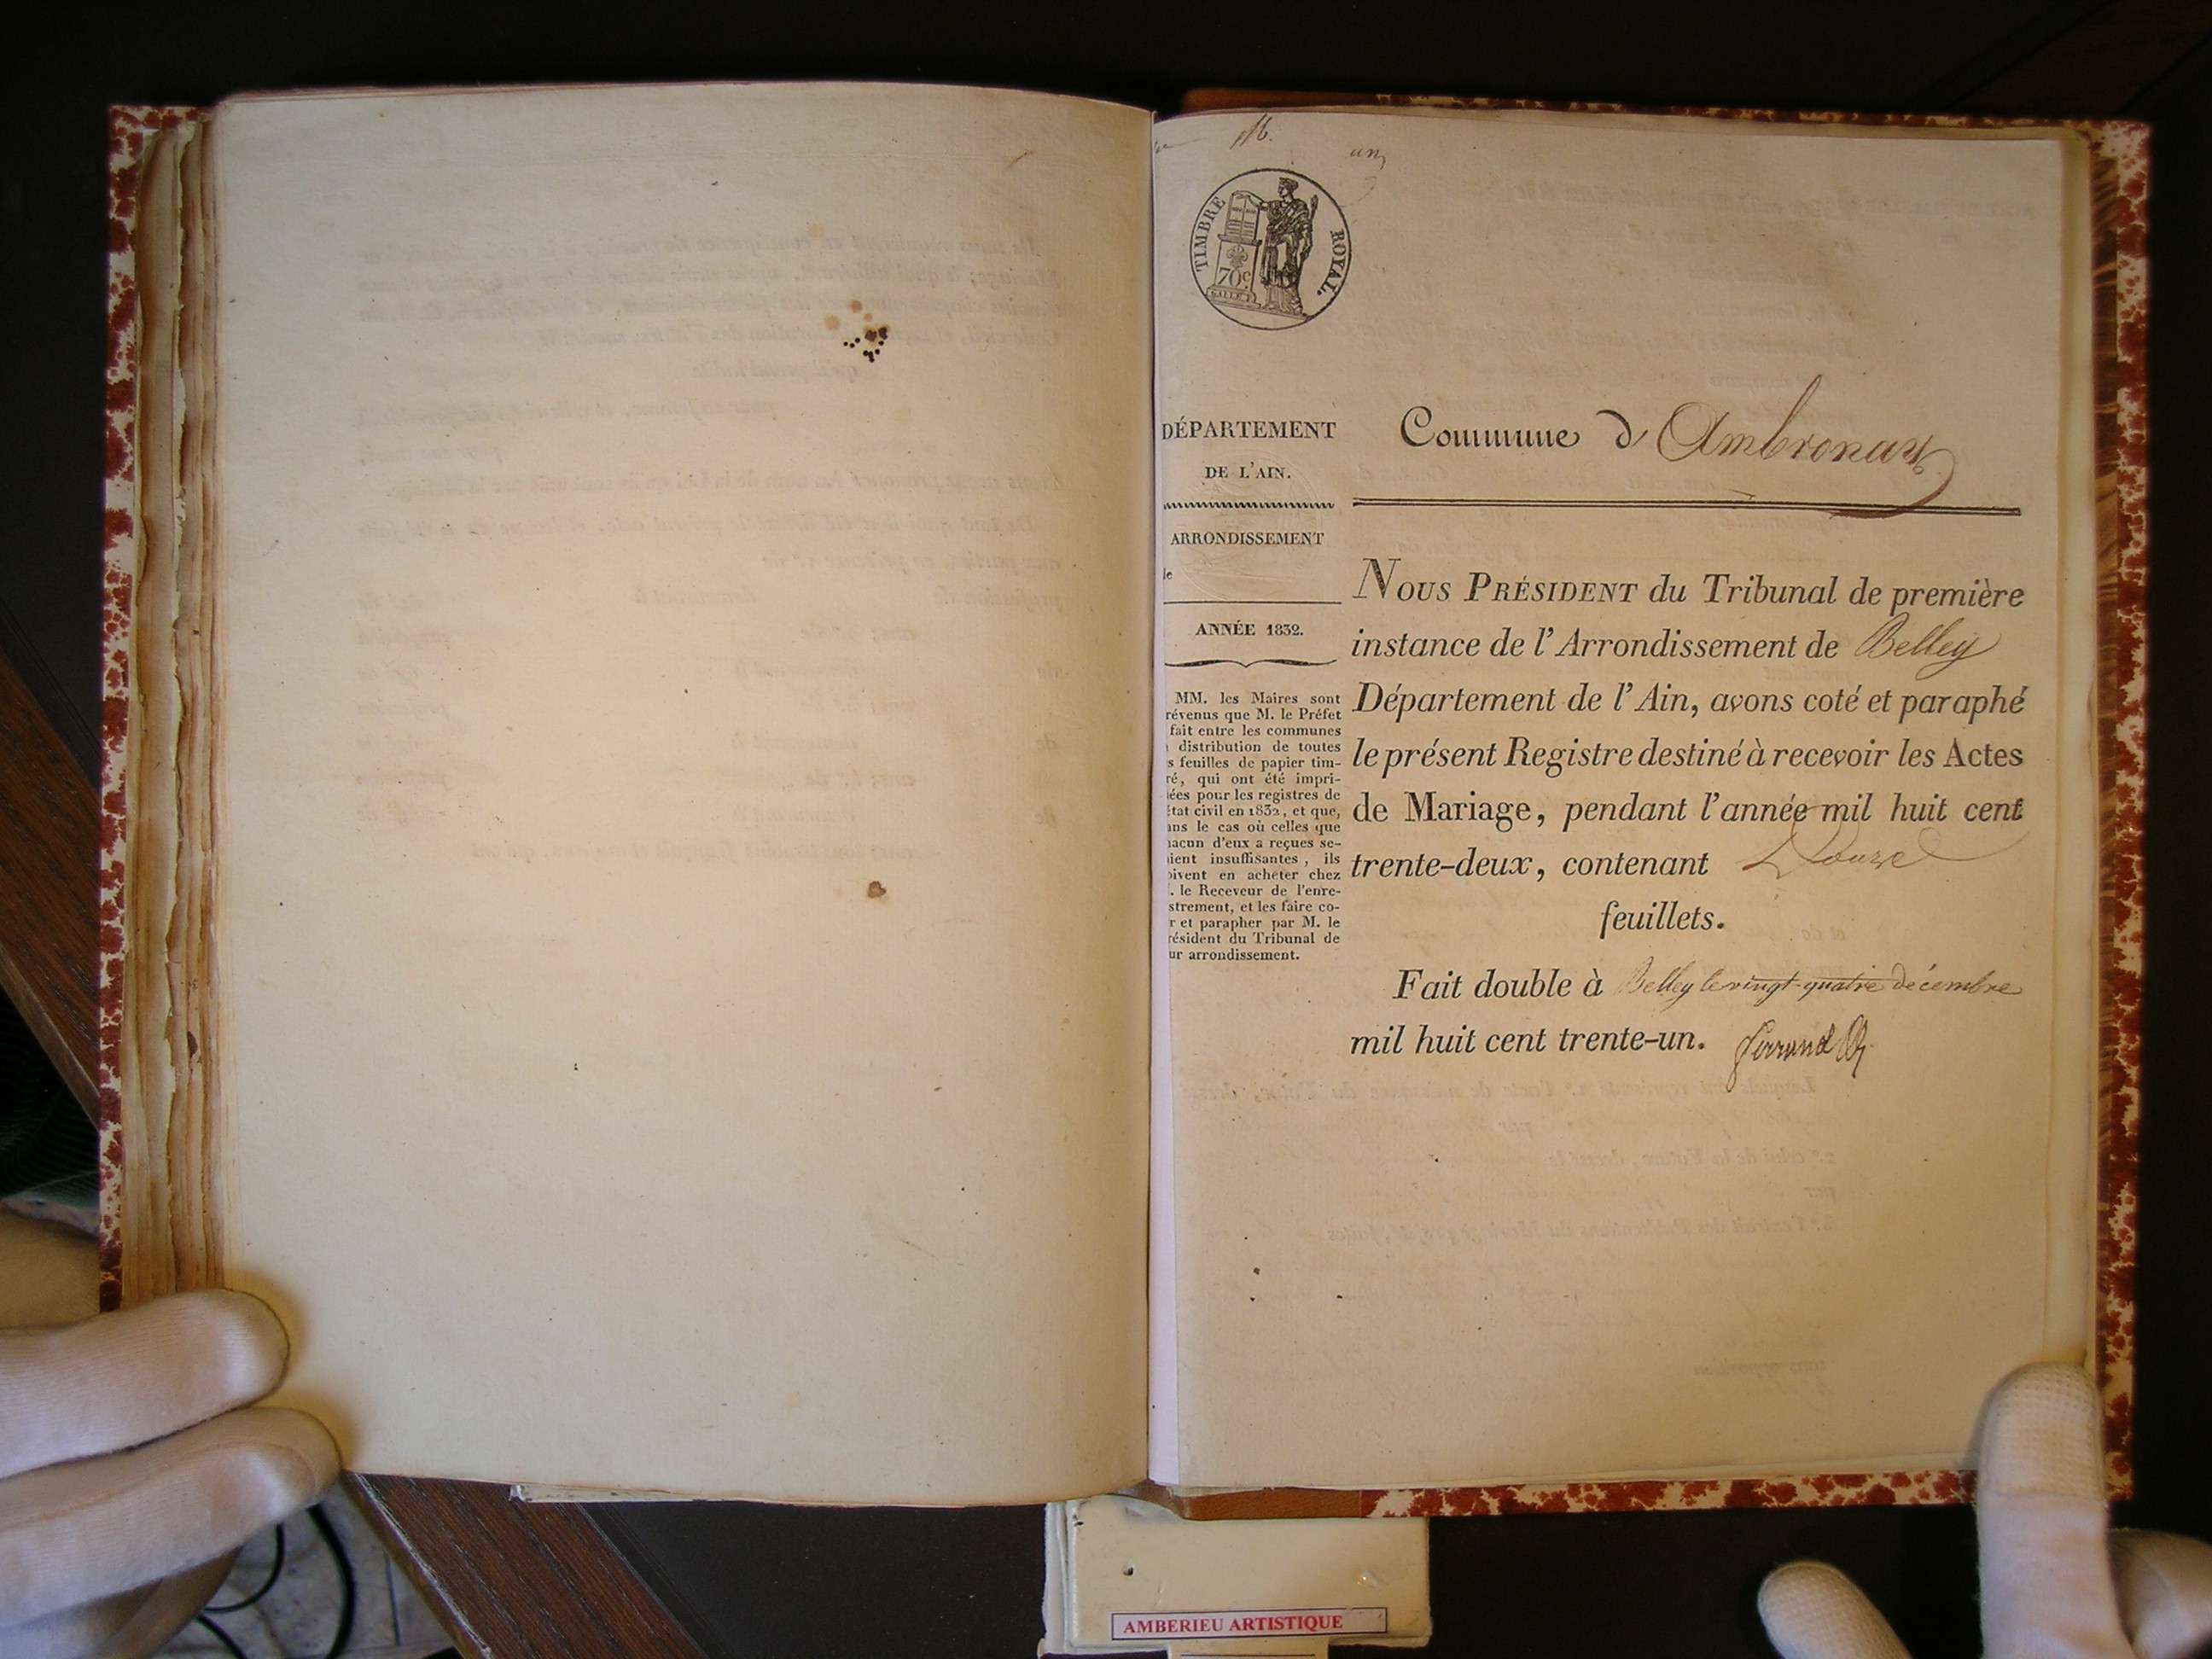 un
TIMBRE ROYAL.
70c
DÉPARTEMENT
DE L'AIN.
ARRONDISSEMENT
ANNÉE 1832.
MM. les Maires sont
révenus que M. le Préfet
fait entre les communes
distribution de toutes
s feuilles de papier tim-
ré, qui ont été impri-
ées pour les registres de
état civil en 1832, et que,
ans le cas où celles que
hacun d'eux a reçues se-
aient insuffisantes, ils
oivent en acheter chez
. le Receveur de l'enre-
strement, et les faire co-
r et parapher par M. le
résident du Tribunal de
ur arrondissement.
Commune d'Ambronay
NOUS PRÉSIDENT du Tribunal de première
instance de l'Arrondissement de Belley
Département de l'Ain, avons coté et paraphé
le présent Registre destiné à recevoir les Actes
de Mariage, pendant l'année mil huit cent
trente-deux, contenant Douze
feuillets.
Fait double à Belley le vingt-quatre décembre
mil huit cent trente-un. Ferrand
AMBERIEU ARTISTIQUE